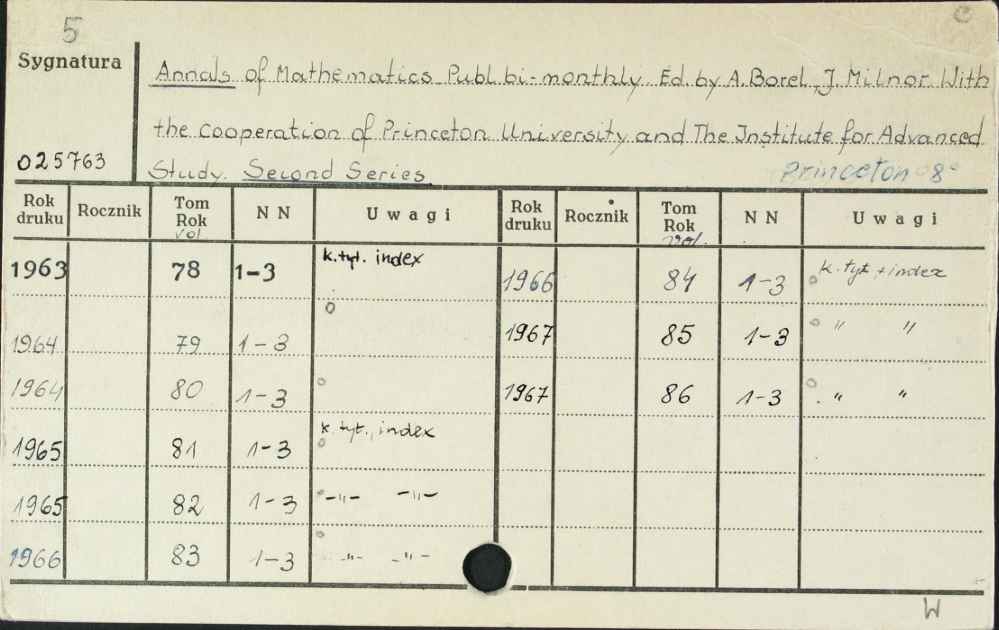 5
C
Sygnatura
Annals of Mathematics Publ. bi-monthly. Ed. by A. Borel, J. Milnor. With
the cooperation of Princeton University and The Institute for Advanced
025763
Study. Second Series.
Princeton 8°
Rok druku Rocznik Tom Rok vol NN Uwagi Rok druku Rocznik Tom Rok vol. NN Uwagi
1963 78 1-3 k.tyt. index 1966 84 1-3 k. tyt + index
1964 79 1-3 1967 85 1-3 " "
1964 80 1-3 1967 86 1-3 " "
1965 81 1-3 k. tyt., index
1965 82 1-3 -"- -"-
1966 83 1-3 -"- -"-
W